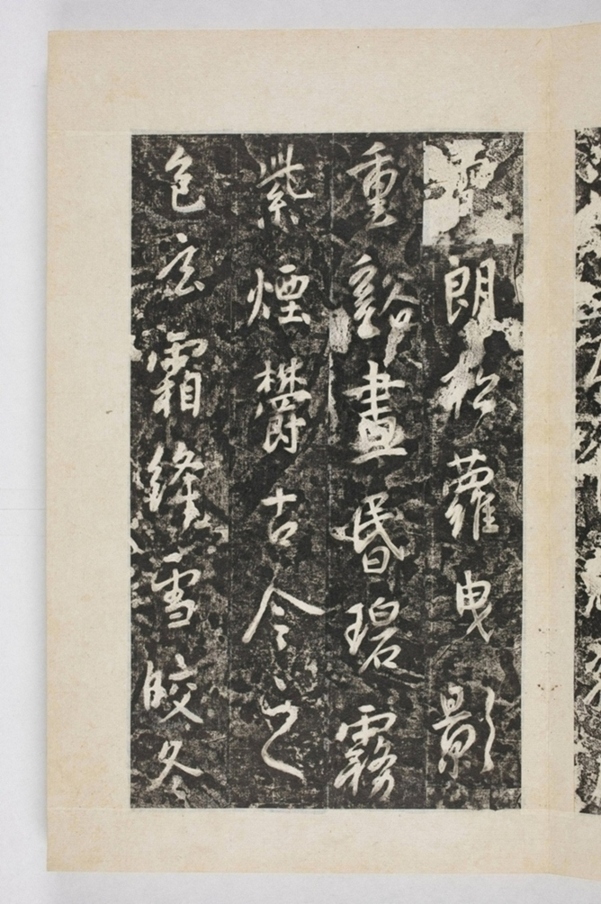 朗松蘿曳影
重谿晝昏碧霧
紫煙欝古今之
色玄霜絳雪皎冬